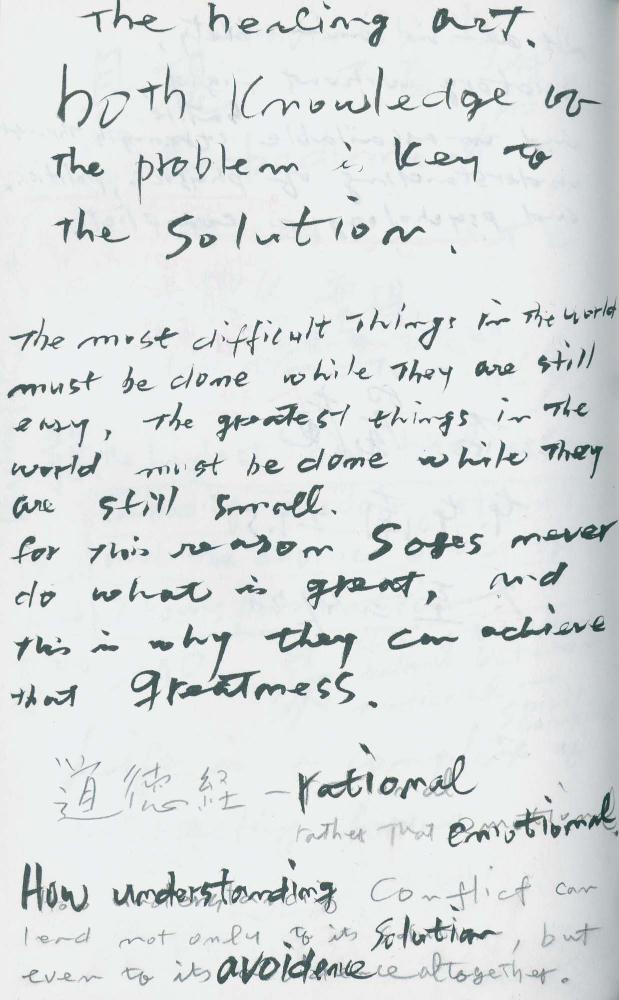 The healing art.
both Knowledge of
The problem is Key to
The Solution.
The most difficult Things in The world
must be done while They are still
easy, The greatest things in The
world must be done while They
are still small.
for this reason Sages never
do what is great, and
this is why they can achieve
that Greatness.
道德経 - rational
rather that emotional.
How understanding Conflict can
lead not only to its Solution, but
even to its avoidence altogether.